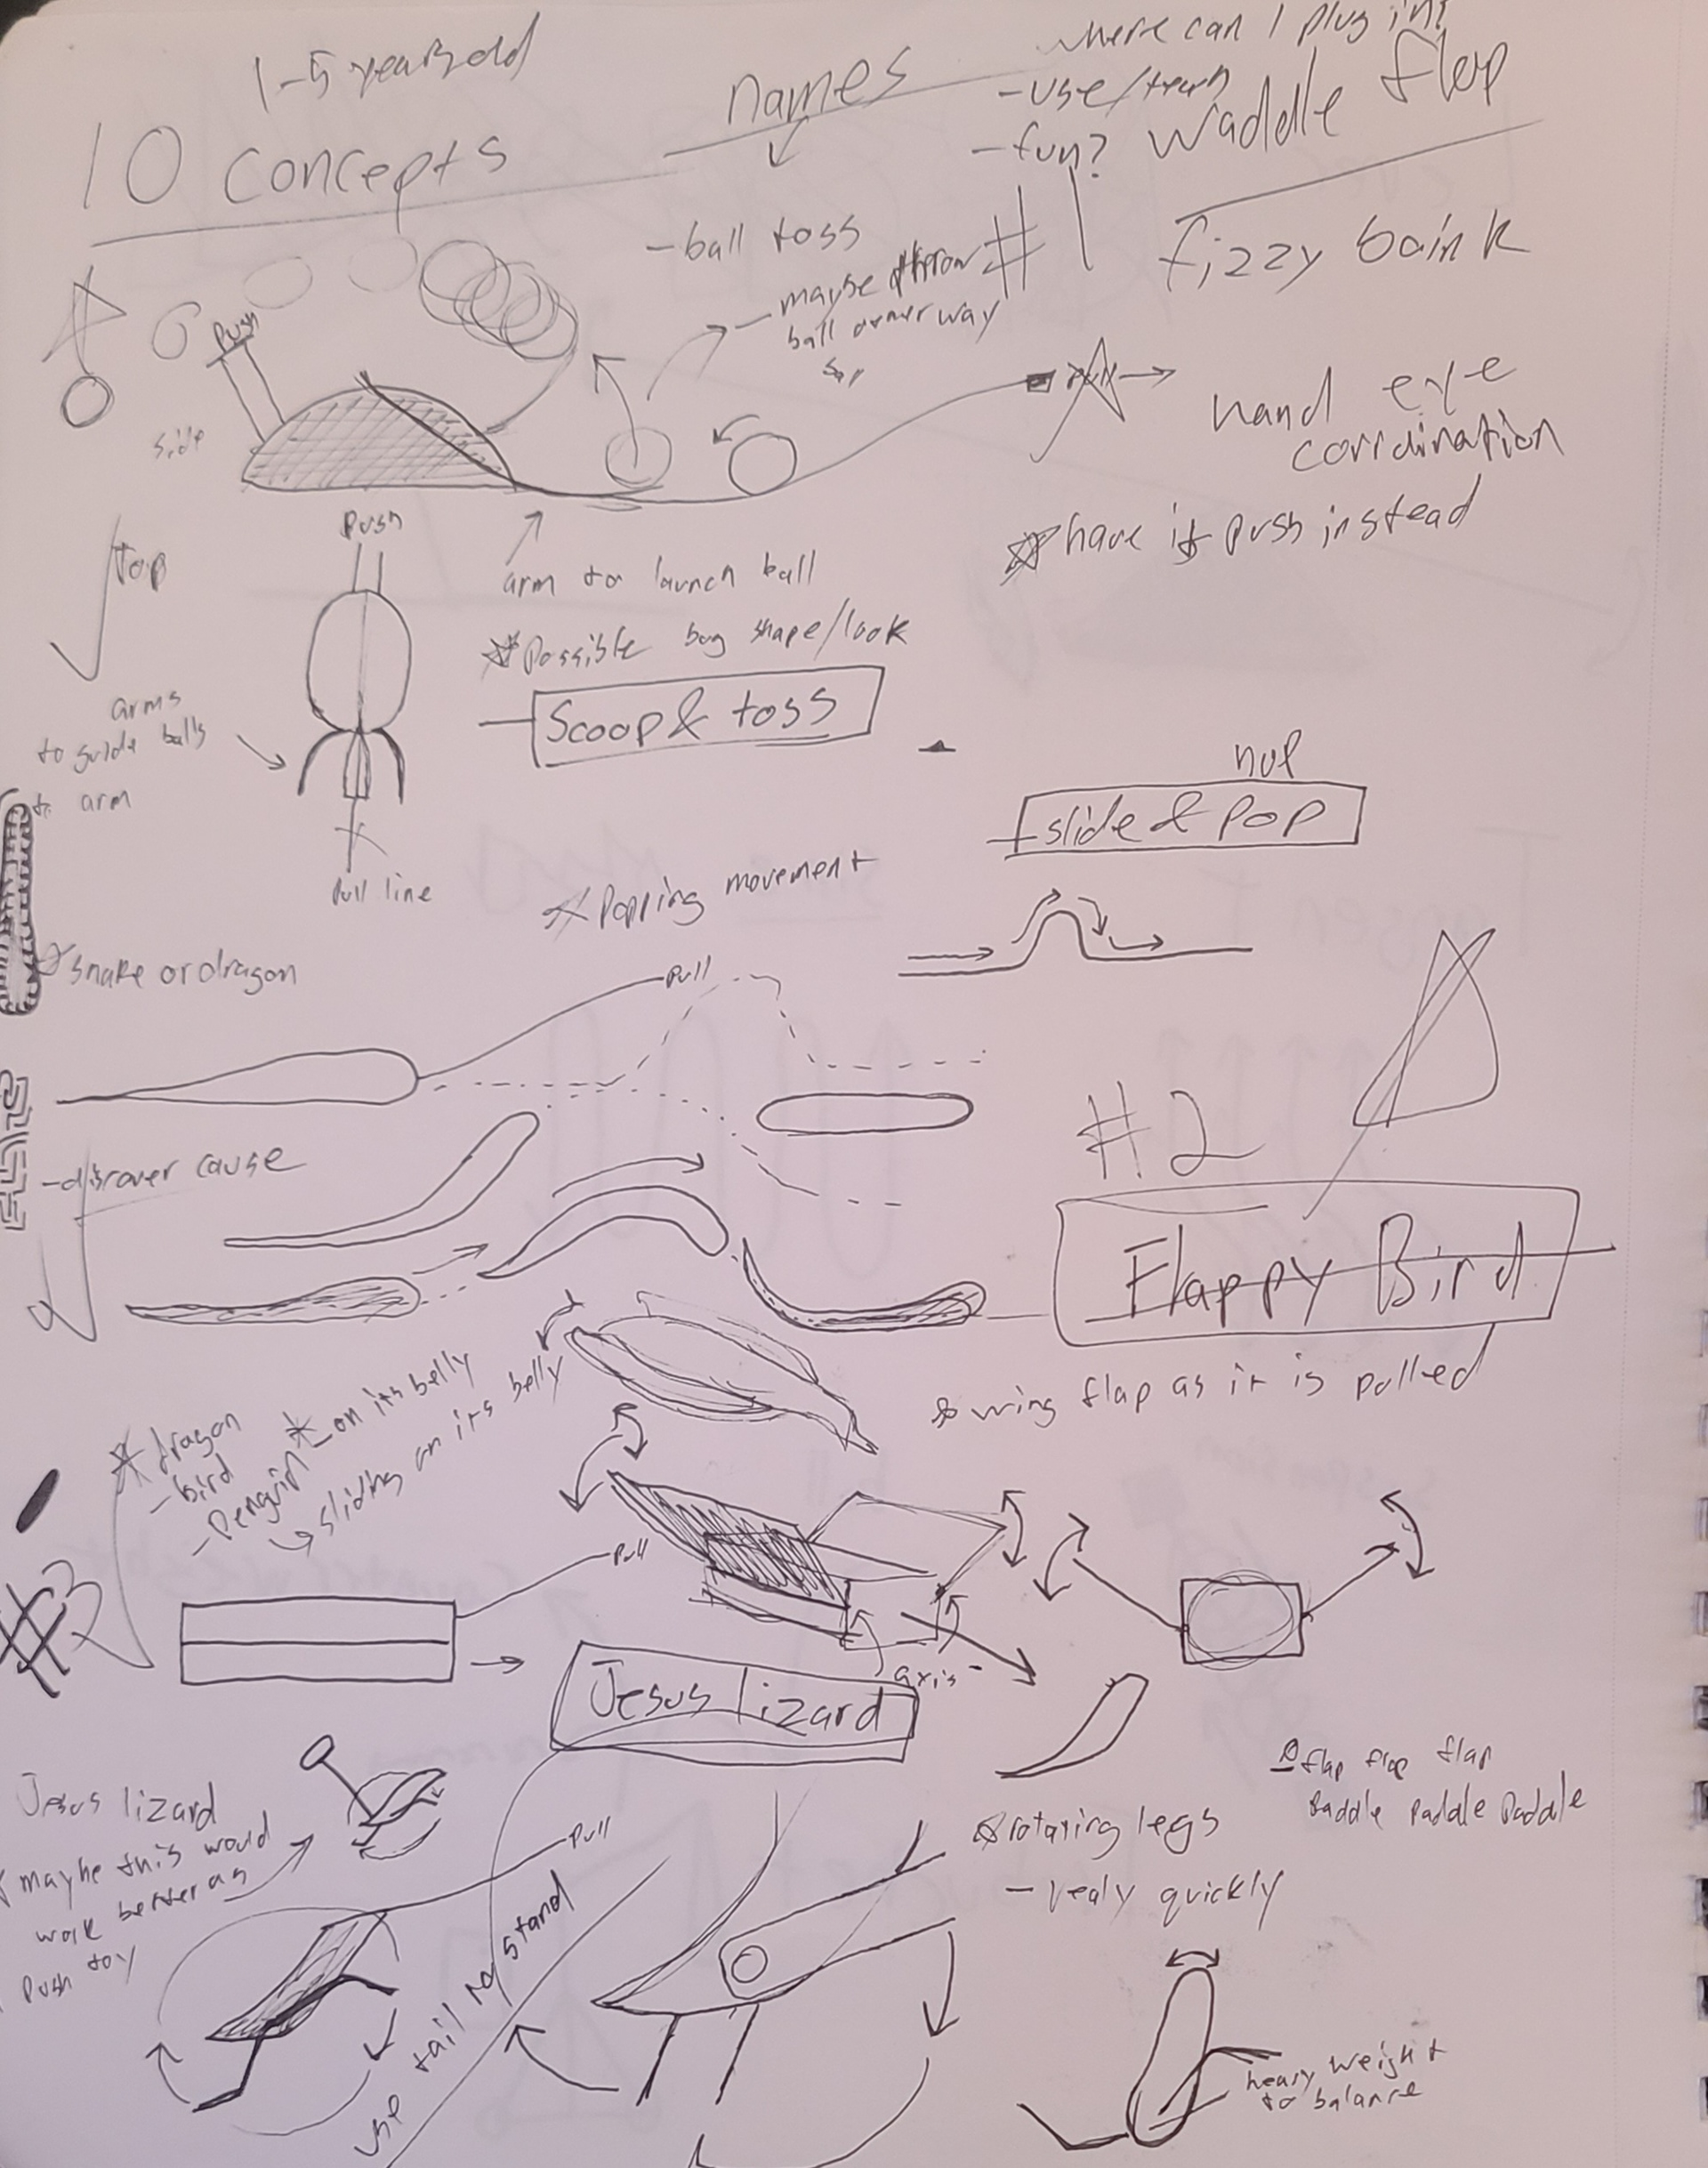 1-5 years old
10 concepts
names
where can I plug in?
- use/teach
- fun?
waddle flap
fizzy boink
#1
- ball toss
- maybe throw
ball other way
Push
side
hand eye
corrdination
☆ have it push instead
top
Push
arm to launch ball
☆ Possible bug shape/look
Scoop & toss
arms
to guide balls
to arm
Pull line
nop
slide & pop
☆ Popping movement
☆ snake or dragon
Pull
- discover cause
#2
Flappy Bird
☆ wing flap as it is pulled
☆ dragon
- bird
- Penguin ☆ - on its belly
↳ sliding on its belly
#3
Pull
axis
Jesus lizard
flap flap flap
Paddle Paddle Paddle
Jesus lizard
maybe this would
work better as
Push toy
Pull
use tail to stand
☆ rotaring legs
- realy quickly
heavy weight
to balance